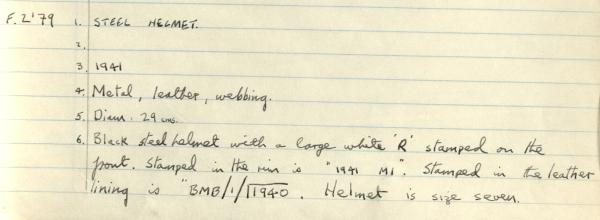 F.2'79 1. STEEL HELMET.
2.
3. 1941
4. Metal, leather, webbing.
5. Diam. 29 cms.
6. Black steel helmet with a large white 'R' stamped on the
front. Stamped in the rim is "1941 M1". Stamped in the leather
lining is "BMB/1/1940. Helmet is size seven.